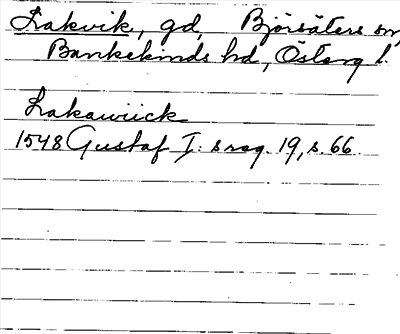 Lakvik, gd, Björsäters sn,
Bankekinds hd, Österg l.
Lakawiick
1548 Gustaf I: s reg. 19, s. 66.